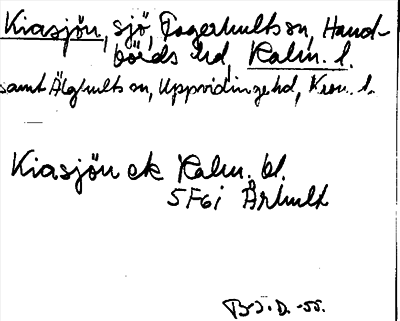 Kiasjön, sjö, Fagerhults sn, Hand-
börds hd, Kalm. l.
samt Älghults sn, Uppvidinge hd, Kron. l.
Kiasjön ek Kalm. bl.
5F6i Århult
B.J.D. -55.